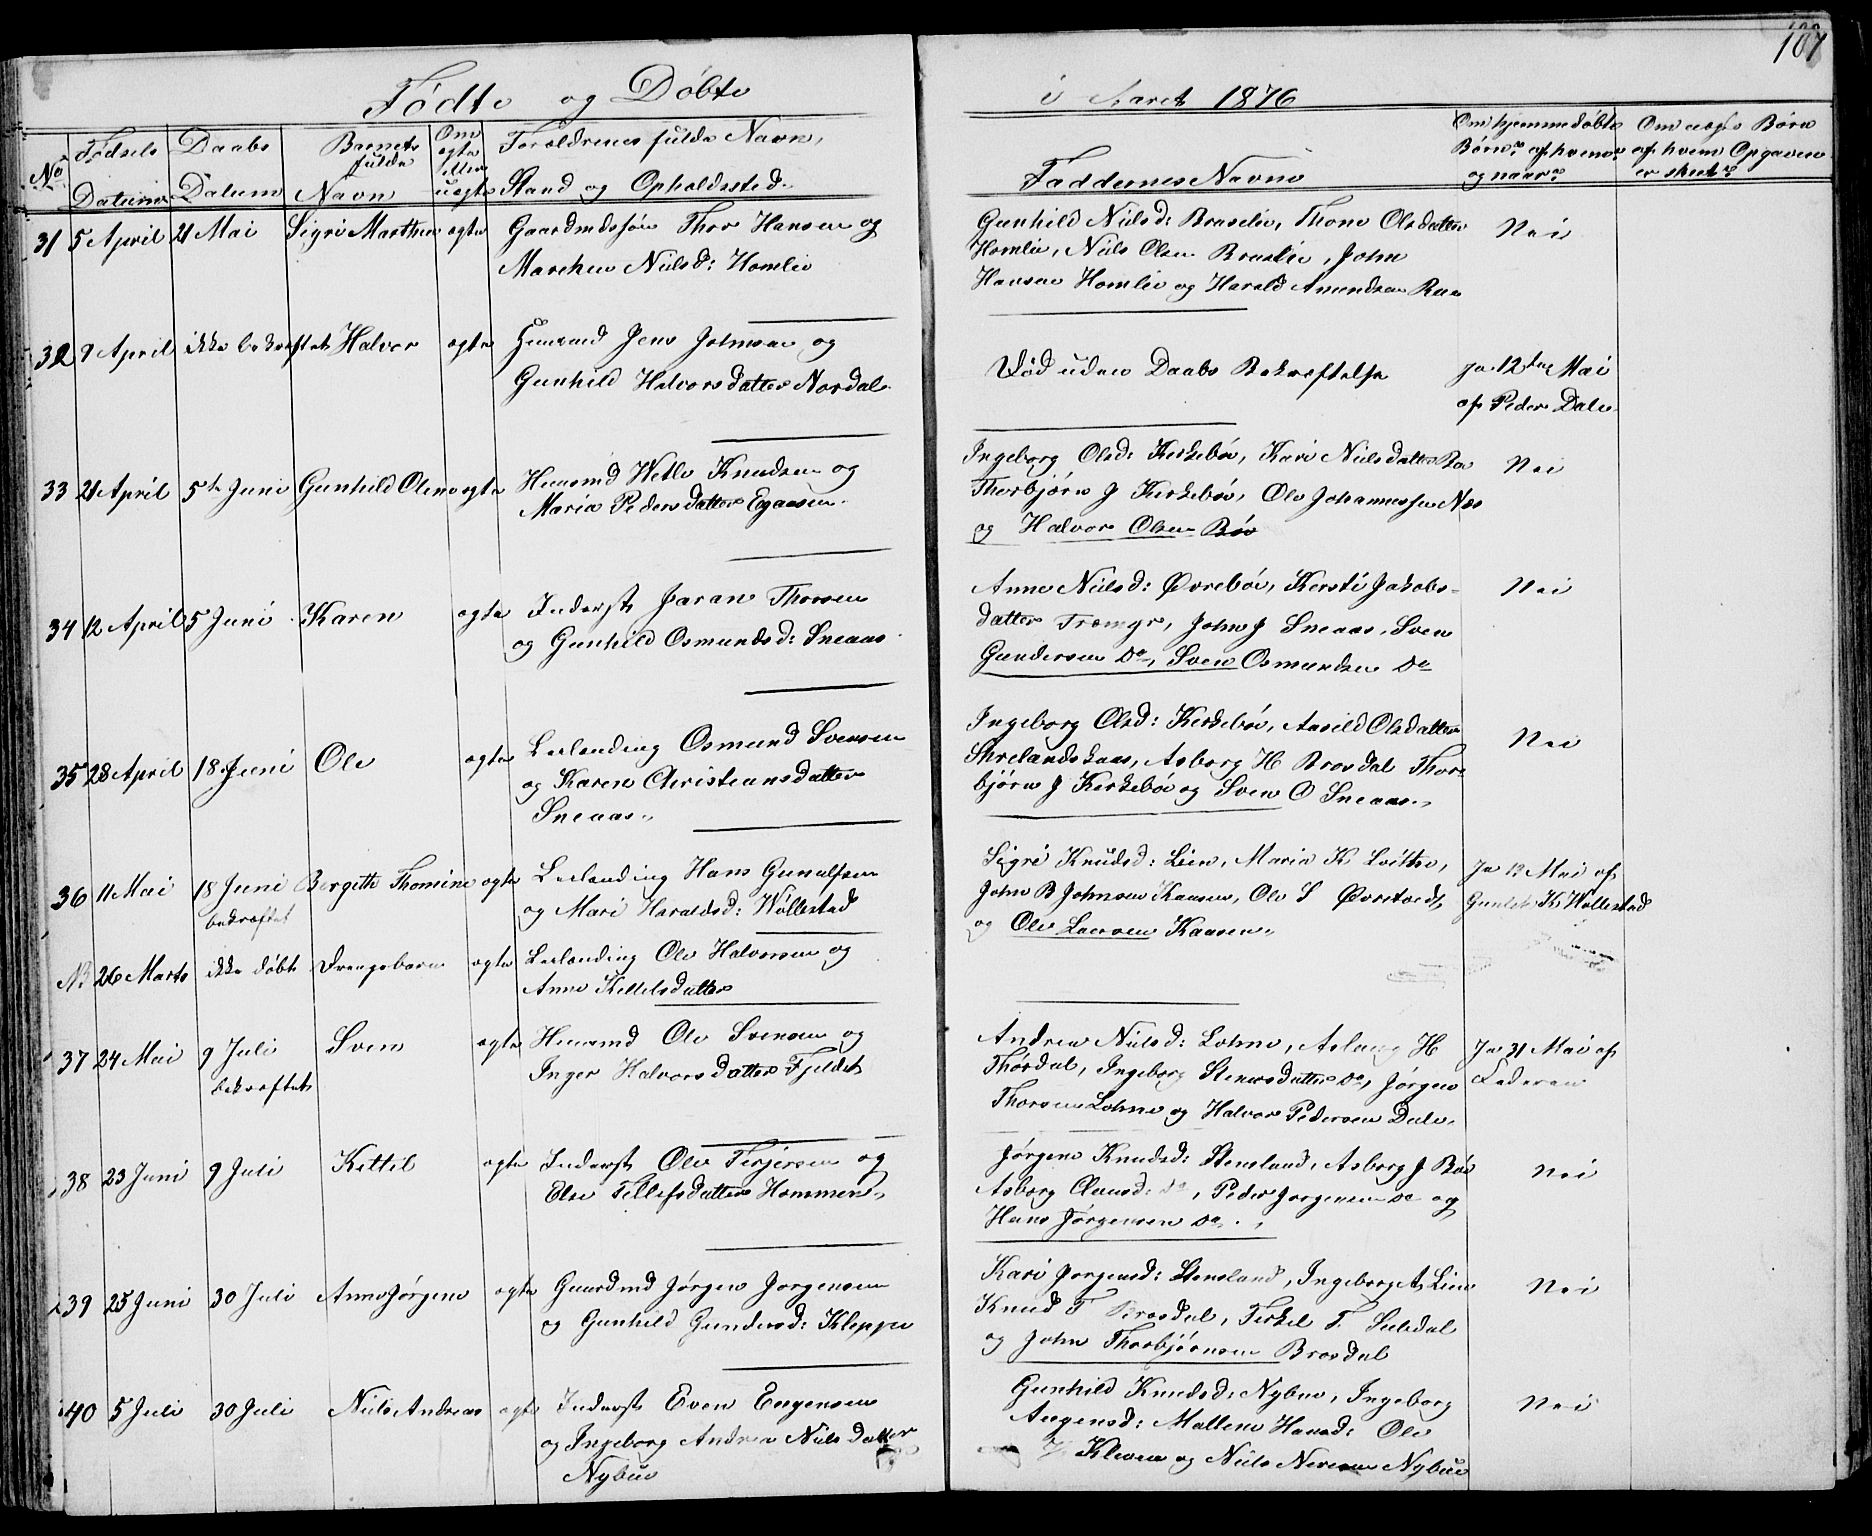 107
Fødte og Døbte i Aaret 1876
No
Fødsels Datum
Daabs Datum
Barnets fulde Navn
Om ægte eller uægte
Forældrenes fulde Navn, Stand og Opholdssted.
Faddernes Navne
Om hjemmedøbte Børn, af hvem og naar
Om uægte Børn af hvem Opgaven er skeet
31 5 April 21 Mai Sigri Marthea ægte Gaardmdssøn Thor Hansen og
Marchen Nielsd: Homlie
Gunhild Nielsd: Braselie, Thone Olsdatter
Homlie, Niels Olsen Braslie, John
Hansen Homlie og Harald Amundsen Raa
Nei
32 9 April ikke bekræftet Halvor ægte Huusmd Jens Johnsen og
Gunhild Halvorsdatter Nordal
Død uden Daabs Bekræftelse
ja 12te Mai
af Peder Dale
33 21 April 5te Juni Gunhild Olene ægte Huusmd Wetle Knudsen og
Maria Pedersdatter Egaasen
Ingeborg Olsd: Kirkebøe, Kari Nielsdatter Bøe
Thorbjørn J Kirkebøe, Ole Johannessen Næs
og Halvor Olsen Bøe
Nei
34 12 April 5 Juni Karen ægte Inderst Jaran Thorsen
og Gunhild Osmundsd: Sneaas
Anne Nielsd: Øvrebøe, Kersti Jakobs-
datter Tromyr, John J Sneaas, Sven
Gundersen Do, Sven Osmundsen Do
Nei
35 28 April 18 Juni Ole ægte Leilending Osmund Svensen
og Karen Christiansdatter
Sneaas
Ingeborg Olsd: Kirkebøe, Aasild Olsdatter
Asborg H Brosdal Thor-
bjørn J Kirkebøe og Sven O Sneaas
Nei
36 11 Mai 18 Juni bekræftet Bergitte Thomine ægte Leilending Hans Gunulfsen
og Mari Haraldsd: Wøllestad
Sigri Knudsd: Lien, Maria K
John B Johnsen Kaasen, Ole S Øvretvedt
og Ole Larsen Kaasen
Ja 12 Mai af
K Wøllestad
NB 26 Marts ikke døbt Drengebarn ægte Leilending Ole Halvorsen og
Anne Kittelsdatter
37 24 Mai 9 Juli bekræftet Sven ægte Huusmd Ole Svensen og
Inger Halvorsdatter Fjeldet
Andrea Nielsd: Lohne, Aslaug H
Thørdal, Ingeborg Stenersdatter Do, Jørgen
Thorsen Lohne og Halvor Pedersen Dale
Ja 31 Mai af
Faderen
38 23 Juni 9 Juli Kittil ægte Inderst Ole Terjersen og
Else Tellefsdatter Hommen
Jørgine Knudsd: Stensland, Asborg J Bøe
Asborg Clausd: Do, Peder Jørgensen Do og
Hans Jørgensen Do
Nei
39 25 Juni 30 Juli Anne Jørgene ægte Gaardmd Jørgen Jørgensen
og Gunhild Gundersd: Kleppe
Kari Jørgensd: Stensland, Ingeborg A Lien
Knud T Brosdal, Terkel T.
og John Thorbjørnsen Brosdal
Nei
40 5 Juli 30 Juli Niels Andreas ægte Inderst Even Engensen
og Ingeborg Andrea Nielsdatter
Nybue
Gunhild Knudsd: Nybue, Ingeborg
Engensd: Mallene Hansd: Ole
Kleven og Niels Nybue
Nei